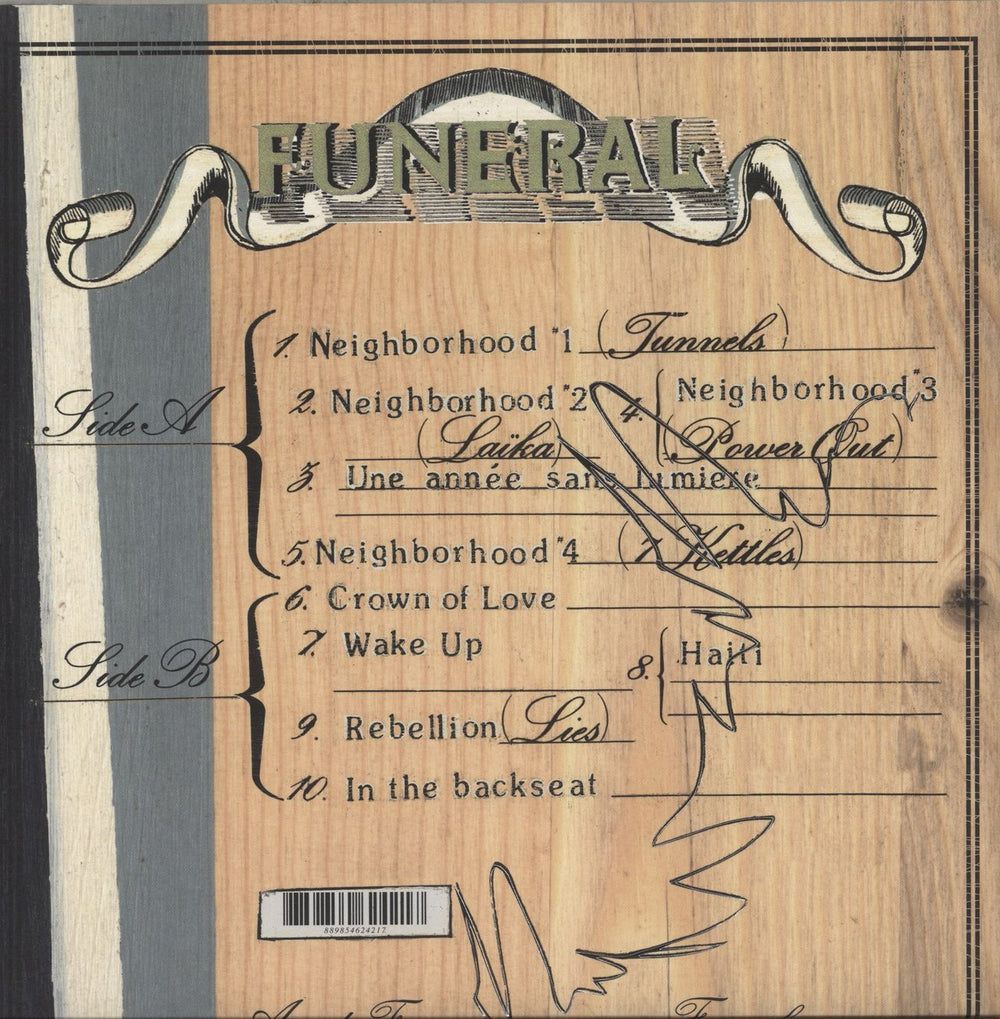 FUNERAL
Side A
1. Neighborhood #1 (Tunnels)
2. Neighborhood #2
(Laïka)
3. Une année sans lumiere
4. Neighborhood #3
(Power Out)
5. Neighborhood #4 (7 Kettles)
Side B
6. Crown of Love
7. Wake Up
8. Haiti
9. Rebellion (Lies)
10. In the backseat
889854624217